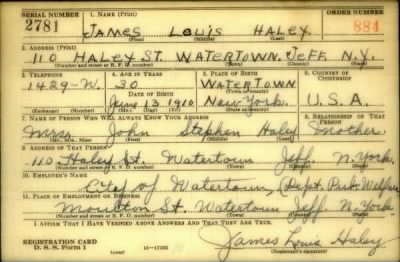 SERIAL NUMBER 1. NAME (Print) ORDER NUMBER
2781 JAMES LOUIS HALEY 884
(First) (Middle) (Last)
2. ADDRESS (Print)
110 HALEY ST. WATERTOWN, JEFF. N.Y.
(Number and street or R. F. D. number) (Town) (County) (State)
3. TELEPHONE 4. AGE IN YEARS 5. PLACE OF BIRTH 6. COUNTRY OF CITIZENSHIP
1429-W. 30 WATERTOWN
DATE OF BIRTH (Town or county)
June 13 1910 New York. U.S.A.
(Exchange) (Number) (Mo.) (Day) (Yr.) (State or country)
7. NAME OF PERSON WHO WILL ALWAYS KNOW YOUR ADDRESS 8. RELATIONSHIP OF THAT PERSON
Mrs. John Stephen Haley Mother
(Mr., Mrs., Miss) (First) (Middle) (Last)
9. ADDRESS OF THAT PERSON
110 Haley St. Watertown Jeff. N. York.
(Number and street or R. F. D. number) (Town) (County) (State)
10. EMPLOYER'S NAME
City of Watertown, (Dept. Pub. Welfare
11. PLACE OF EMPLOYMENT OR BUSINESS
Moulton St. Watertown Jeff. N. York.
(Number and street or R. F. D. number) (Town) (County) (State)
I AFFIRM THAT I HAVE VERIFIED ABOVE ANSWERS AND THAT THEY ARE TRUE.
REGISTRATION CARD
D. S. S. Form 1 (over) 16—17105 James Louis Haley
(Registrant's signature)